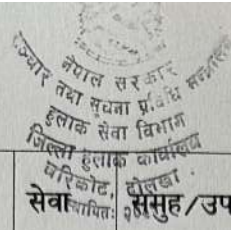 नेपाल सरकार
सञ्चार तथा सूचना प्रविधि मन्त्रालय
हुलाक सेवा विभाग
जिल्ला हुलाक कार्यालय
चरिकोट, दोलखा
सेवा
समुह/उप